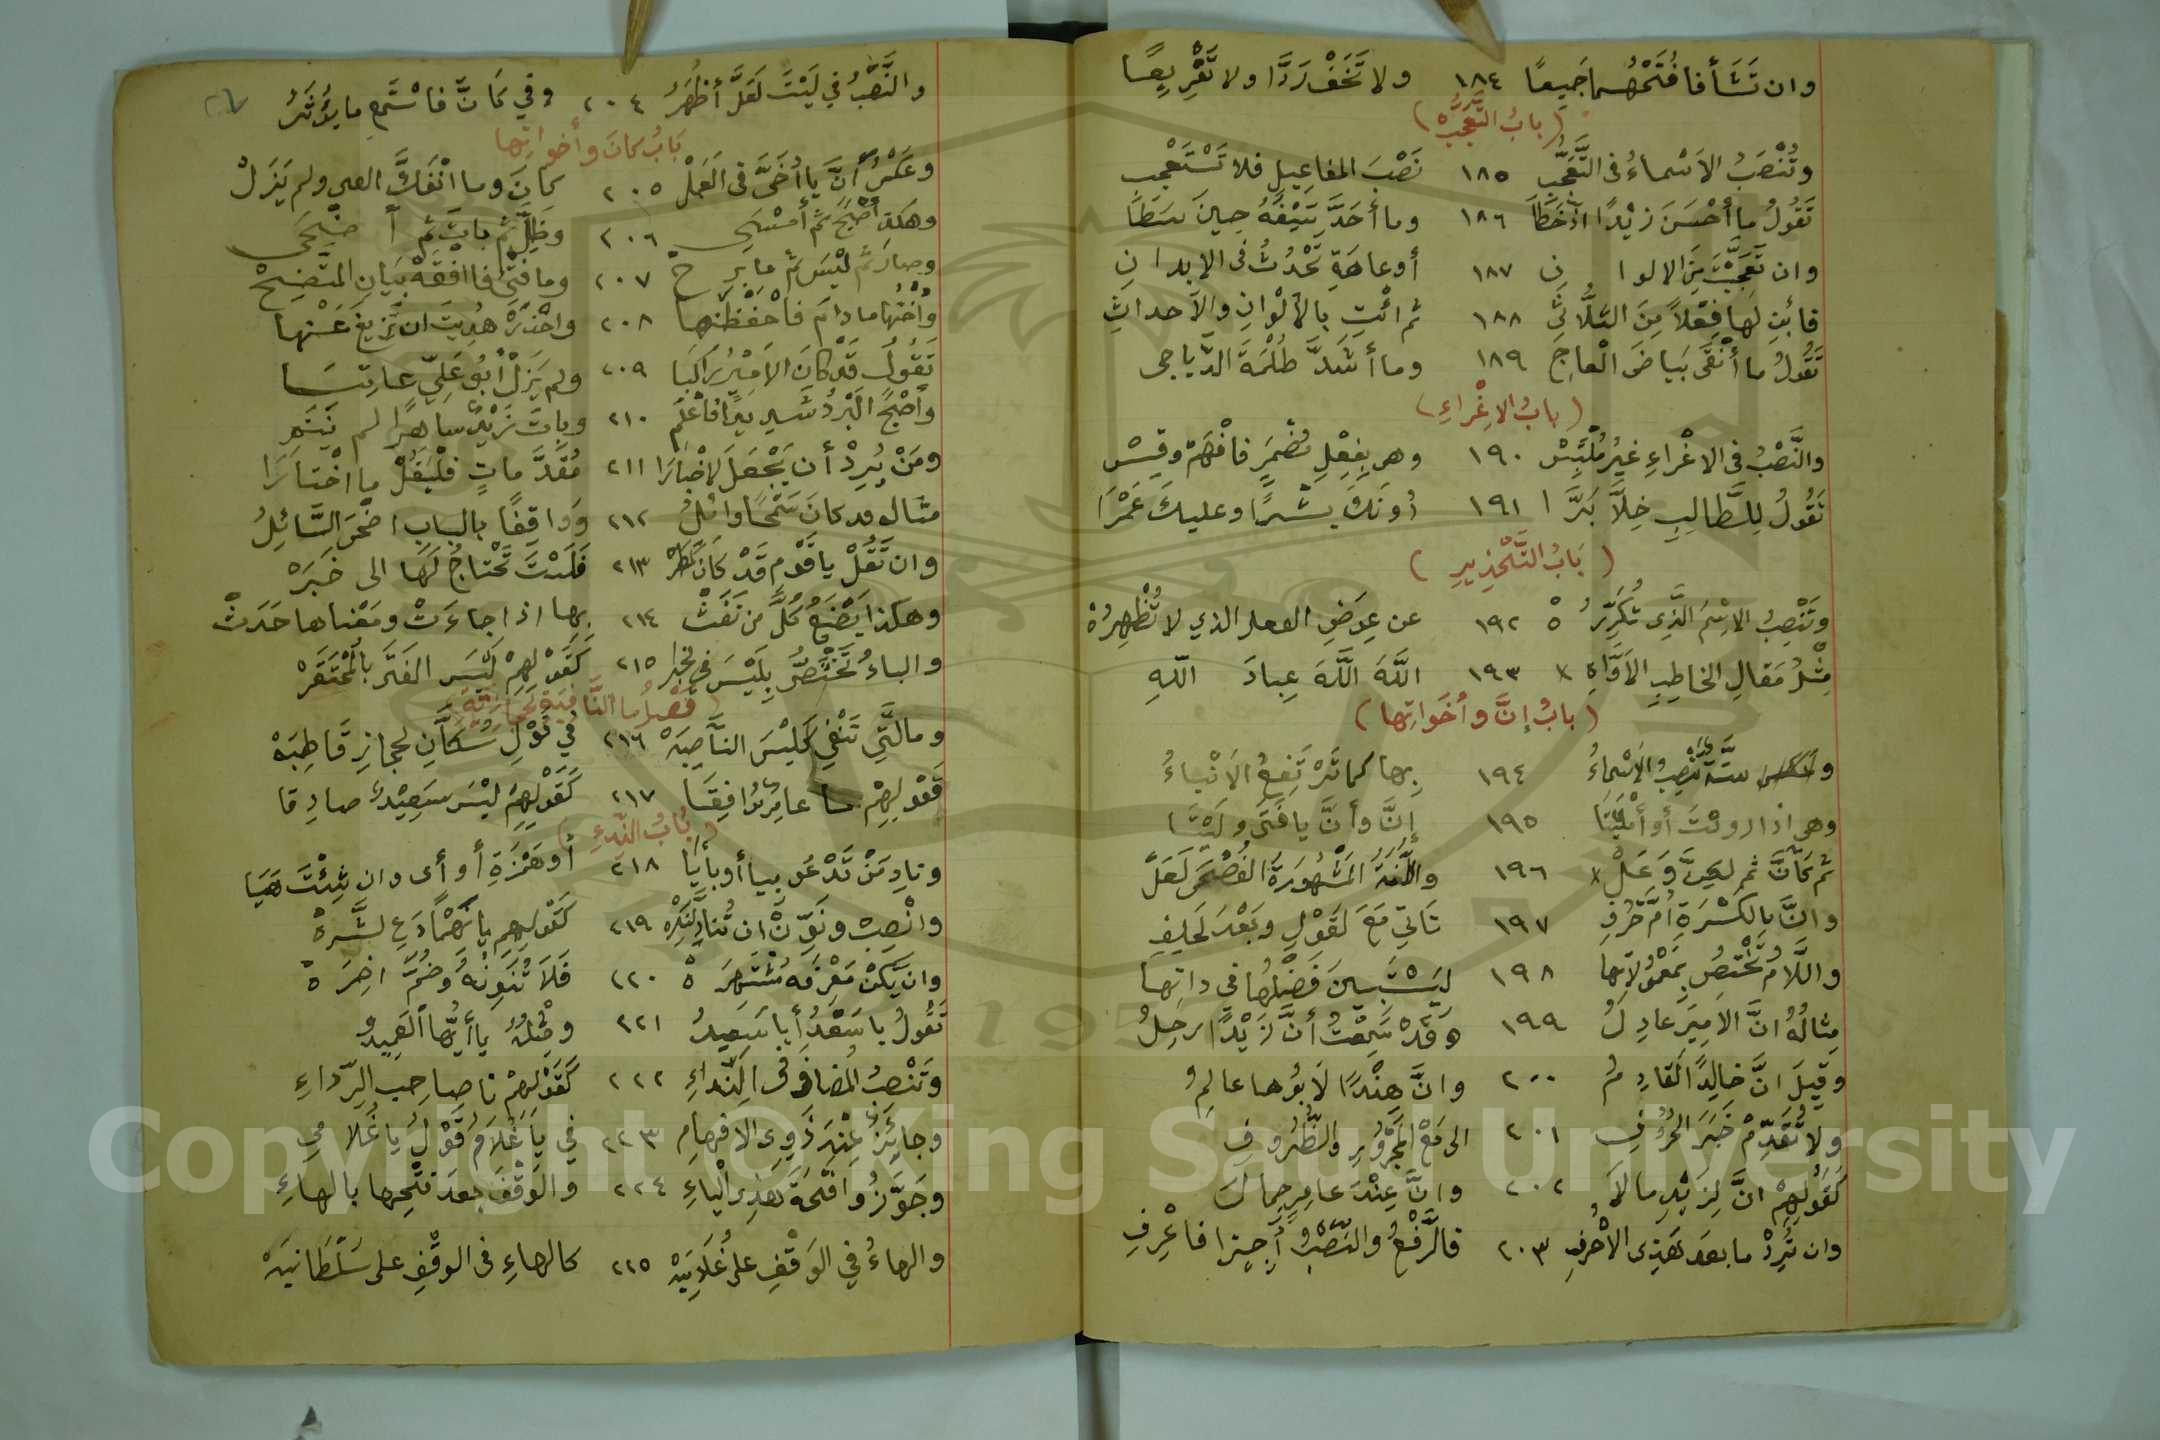 وان تَشَأ فافتَحْهُما جَميعًا ١٨٤ ولا تَخَفْ رَدًّا ولا تَقْرِيعًا
(بابُ التَّعَجُّبْ)
وتُنْصَبُ الاَسْماءُ فى التَّعَجُّبِ ١٨٥ نَصْبَ المفاعِيلِ فلا تَسْتَعْجِبِ
تَقُولُ ما أَحْسَنَ زَيْدًا اذْ خَطَا ١٨٦ وما أَحَدَّ سَيْفَهُ حِينَ سَطَا
وان تَعَجَّبْتَ مِنَ الالوانِ ١٨٧ أوعاهَةٍ تَحْدُثُ فى الابدانِ
فابْنِ لَها فِعْلاً مِنَ الثُلاثِى ١٨٨ ثم ائْتِ بالاَلْوانِ والاَحداثِ
تَقُولُ ما أَنْقَى بَياضَ الْعاجِ ١٨٩ وما أَشَدَّ ظُلْمَةَ الدَّياجى
(بابُ الاِغْراءِ)
والنَّصْبُ فى الاغْراءِ غيرُ مُلْتَبِسْ ١٩٠ وهو بِفِعْلٍ مُضْمَرٍ فافْهَمْ وقِسْ
تَقُولُ لِلطَّالِبِ خِلاًّ بَرَّا ١٩١ دُونَكَ بِشْرًا وعليكَ عَمْرَا
(بَابُ التَّحْذِيرِ)
وتَنْصِبُ الاِسْمَ الَّذِى تُكَرِّرُهْ ١٩٢ عن عِوَضِ الفعل الذي لا تُظْهِرُهْ
مِثْلُ مَقالِ الخاطِبِ الاَوَّاهِ ١٩٣ اللَّهَ اللَّهَ عِبادَ اللهِ
(بابُ إنَّ وأخَواتِها)
وستَّةٌ تَنْصِبُ الاَسْماءُ ١٩٤ بِها كما تَرْتَفِعُ الاَنْباءُ
وهى اذا رويْتَ أو أَمْلَيْتَا ١٩٥ إنَّ وأنَّ يافَتَى ولَيْتَا
ثم كأنَّ ثم لكِنَّ وَعَلْ ١٩٦ واللُّغَةُ المَشْهُورَةُ الفُصْحَى لَعَلْ
وانَّ بالكَسْرَةِ أُمُّ الاحْرُفِ ١٩٧ تَاتِي مَعَ لقَوْلِ وبَعْدَ لحَلِفِ
واللَّامُ تَخْتَصُ بِمَعْمُولاتِها ١٩٨ لِيَسْتَبِينَ فَضْلُها فى داتِها
مِثالُهُ انَّ الاَمِيرَ عادِلُ ١٩٩ وقَدْ سَمِعْتُ أنَّ زَيْدًا راحِلُ
وقِيلَ انَّ خالِدًا لَقادِمُ ٢٠٠ وانَّ هِنْدًا لَابُوها عالِمُ
ولا تُقَدِّمْ خَبَرَ الحُرُوفِ ٢٠١ الى مَعَ المَجْرُورِ والظُّرُوفِ
كَقَوْلِهِمْ انَّ لِزَيْدٍ مالَا ٢٠٢ وانَّ عِنْدَ عامِرٍ جِمالَا
وان تُرِدْ مابعدَ هَذِى الاَحْرُفِ ٢٠٣ فالرَّفْعُ والنَّصْبُ أُجِيزا فاعْرِفِ
والنَّصْبُ في لَيْتَ لَعَلَّ أَظْهَرُ ٢٠٤ وفي كَأَنَّ فاسْتَمِعْ ما يُؤْثَرُ
بَابُ كانَ وأخواتِها
وعَكْسُ أنَّ يا أُخَىَّ فى العَمَلْ ٢٠٥ كانَ وما انْفَكَّ الفتى ولم يَزَلْ
وهكذا أَصْبَحَ ثُمَّ أَمْسَى ٢٠٦ وظَلَّ ثُمَّ باتَ ثم أضْحَى
وصارَ ثم لَيْسَ ثم مابرِحْ ٢٠٧ ومافَتِئَ فافْقَهْ بَيانِ المتَّضِحْ
وأُخْتُها مادامَ فاحْفَظَنْها ٢٠٨ واحْذَرْ هُدِيتَ ان تَزِيغَ عَنْها
تَقُولُ قَدْ كانَ الاَمِيْرُ راكِبَا ٢٠٩ ولم يَزَلْ أبُو عَلِيٍّ عاتِبَا
وأصْبَحَ البَرْدُ شَدِيدًا فاعْلَمِ ٢١٠ وباتَ زَيْدٌ ساهِرًا لم يَنَمِ
ومَنْ يُرِدْ أن يَجْعَلَ لاخْبارَا ٢١١ مُقَدَّماتٍ فلْيَقُلْ ما اخْتارَا
مثاله قد كانَ سَمْحًا وائلُ ٢١٢ وَواقِفًا بالبابِ اضْحَى السَّائِلُ
وان تَقُلْ ياقَوْمِ قَدْ كانَ مَطَرْ ٢١٣ فَلَسْتَ تَحْتاجُ لَها الى خَبَرْ
وهكذا يَصْنَعُ كُلُّ من نَفَثْ ٢١٤ بِها اذا جاءَتْ ومَعْناها حَدَثْ
والباءُ تَخْتَصُّ بِلَيْسَ فى لخبر ٢١٥ كَقَوْلِهِمْ لَيْسَ الفَتَى بالمُحْتَقَرْ
(فصْلُ ما النَّافِيَةِ لحجازِيَّةِ)
ومالَّتِي تَنْفِي كَلَيْسَ الناصِبَهْ ٢١٦ فِي قَوْلِ سُكَّانِ لحِجازِ قَاطِبَهْ
فَقَوْلُهُمْ ما عامِرٌ مُوافِقَا ٢١٧ كَقَوْلِهِمْ لَيْسَ سَعِيْدٌ صادِقا
(بَابُ النِّدَاءِ)
ونادِ مَنْ تَدْعُو بيا أو بأيَا ٢١٨ أوهَمْزَةٍ أو أى وان شِئْتَ هَيَا
وانْصِبْ ونَوِّنْ ان تُنادِ النَّكِرَهْ ٢١٩ كَقَوْلِهِم يا نَهِمًا دَعِ لشَّرَهْ
وان يَكُنْ مَعْرِفَه مُشْتَهَرَهْ ٢٢٠ فَلَا تُنَوِّنْهُ وضُمَّ اخِرَهْ
تَقُولُ ياسَعْدُ أَياسَعِيدُ ٢٢١ ومِثْلُهُ يا أَيُّها اَلعَمِيدُ
وتَنْصِبُ المُضافَ فى النِّداءِ ٢٢٢ كَقَوْلِهِمْ ياصاحِبَ الرِّداءِ
وجائِزٌ عِنْدَ ذَوِى الاَفهامِ ٢٢٣ في ياغُلامُ قَوْلُ ياغُلامِى
وجَوَّزُوا فَتْحَةَ هَذِى الْياءِ ٢٢٤ والوَقْفَ بعدَ فتْحِها بالهاءِ
والهاءُ فِي الوَقْفِ على غُلَامِيَهْ ٢٢٥ كالهاءِ فى الوقْفِ على سُلْطَانِيَهْ
Copyright © King Saud University